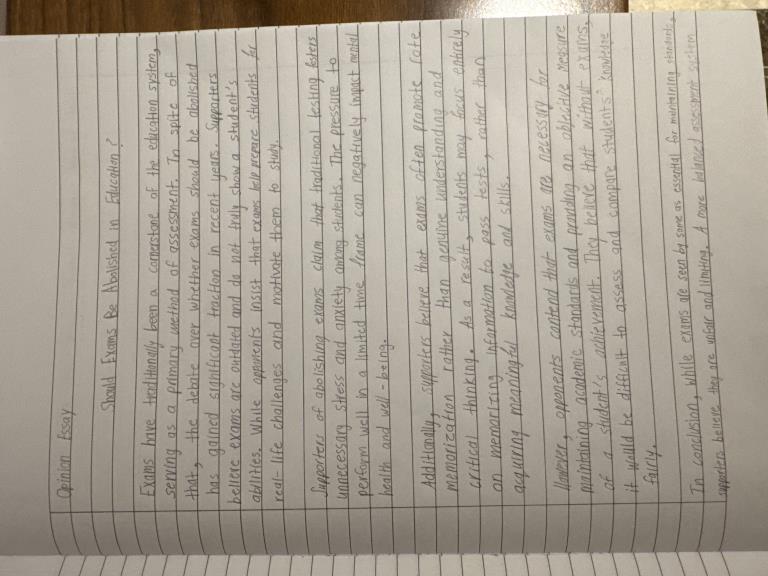 Opinion Essay
Should Exams Be Abolished in Education?
Exams have traditionally been a cornerstone of the education system,
serving as a primary method of assessment. In spite of
that, the debate over whether exams should be abolished
has gained significant traction in recent years. Supporters
believe exams are outdated and do not truly show a student's
abilities. While opponents insist that exams help prepare students for
real-life challenges and motivate them to study.
Supporters of abolishing exams claim that traditional testing fosters
unnecessary stress and anxiety among students. The pressure to
perform well in a limited time frame can negatively impact mental
health and well-being.
Additionally, supporters believe that exams often promote rote
memorization rather than genuine understanding and
critical thinking. As a result, students may focus entirely
on memorizing information to pass tests, rather than
acquiring meaningful knowledge and skills.
However, opponents contend that exams are necessary for
maintaining academic standards and providing an objective measure
of a student's achievement. They believe that without exams,
it would be difficult to assess and compare students' knowledge
fairly.
In conclusion, while exams are seen by some as essential for maintaining standards,
supporters believe they are unfair and limiting. A more balanced assessment system